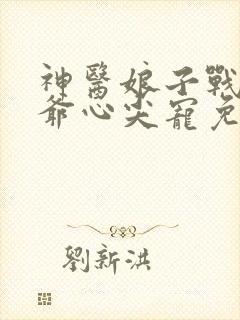 神醫娘子戰
爺心尖寵免
劉新洪